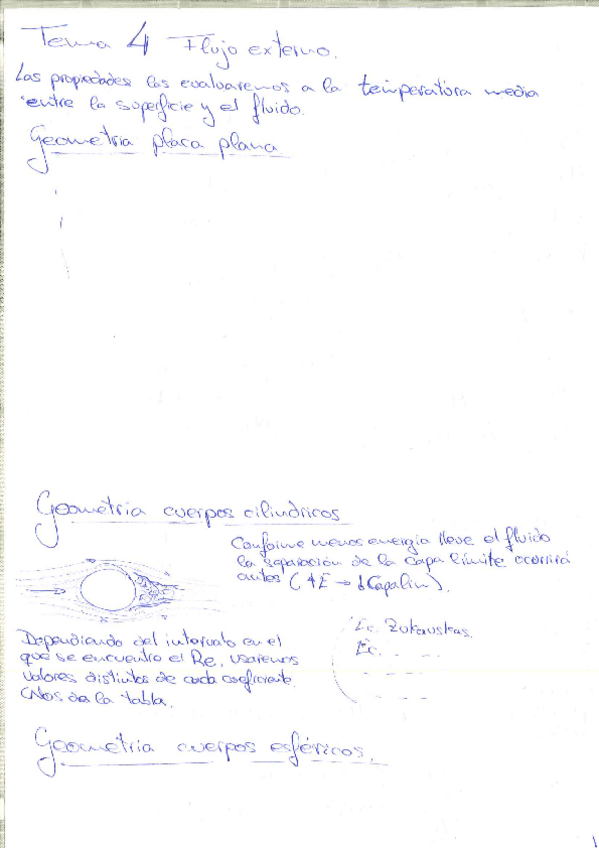 Tema 4 Flujo externo.
Las propiedades las evaluaremos a la temperatura media
entre la superficie y el fluido.
Geometria placa plana
Geometria cuerpos cilindricos
Conforme menos energia lleve el fluido
la separación de la capa límite ocurrirá
antes (
Dependiendo del intervalo en el
que se encuentre el Re, usaremos
valores distintos de cada coeficiente.
de la tabla.
Ec. Zukauskas.
Ec.
Geometria cuerpos esféricos.
1